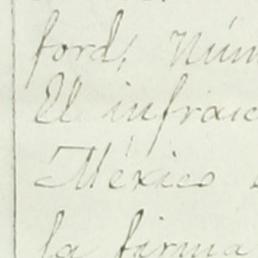 ford, Núm
El infrac
México
la firma